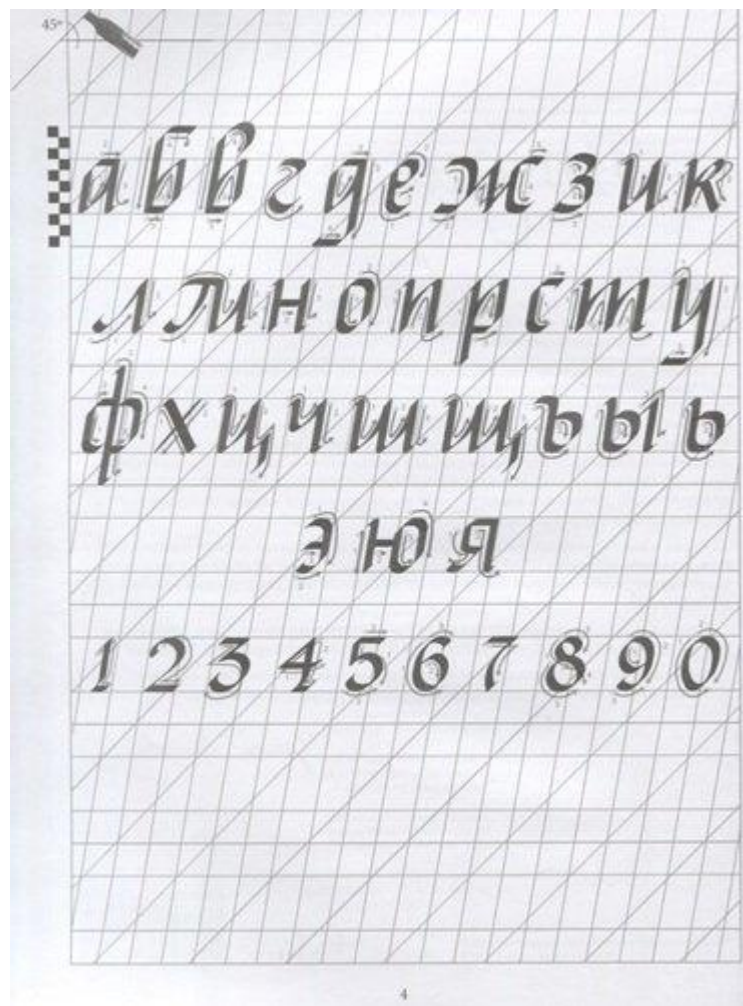 45°
а б в г д е ж з и к
л м н о п р с т у
ф х ц ч ш щ ъ ы ь
э ю я
1 2 3 4 5 6 7 8 9 0
4